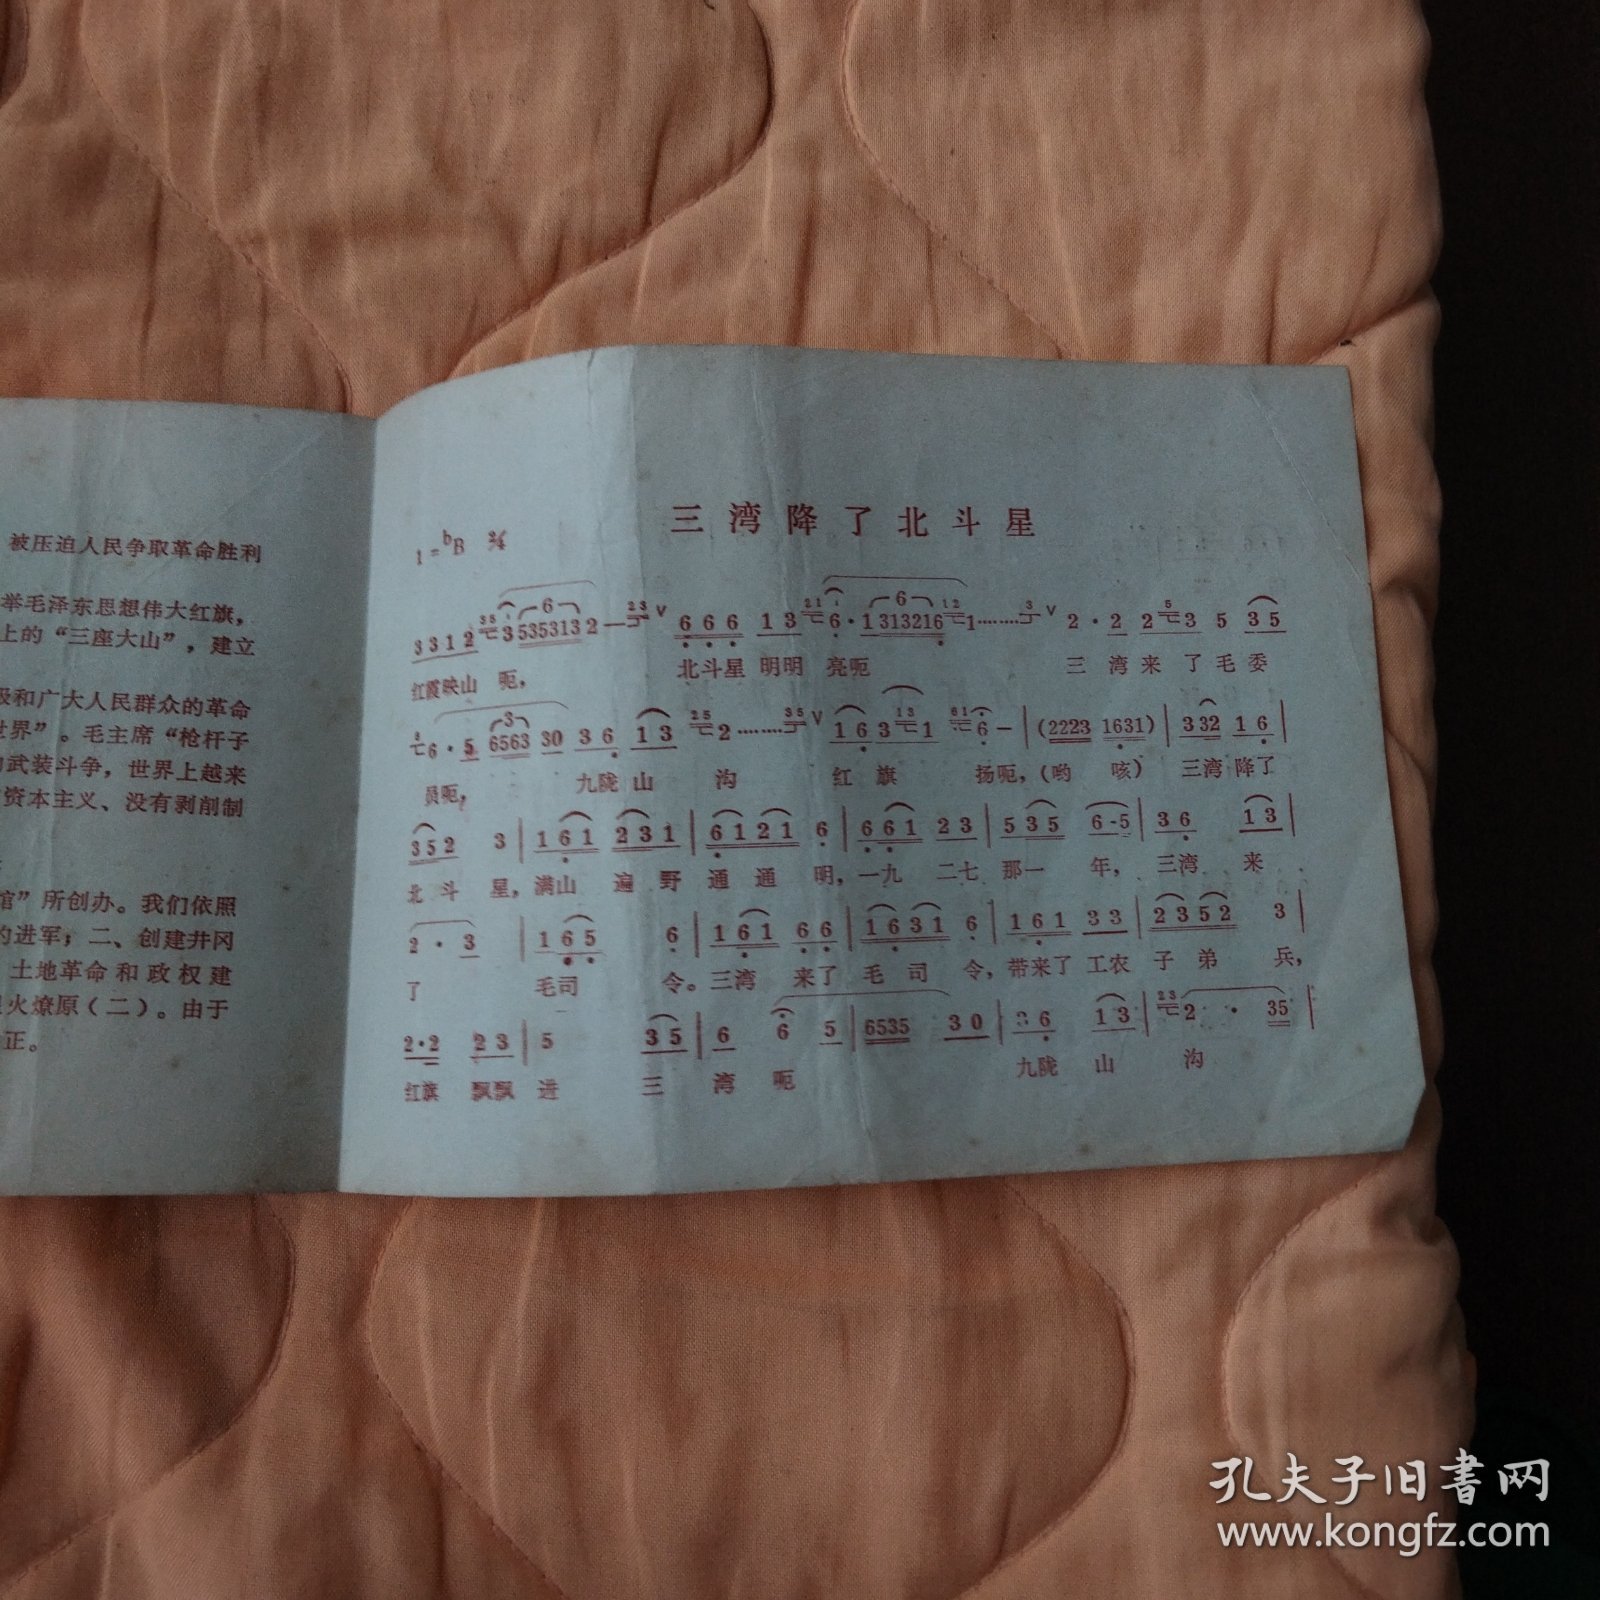 被压迫人民争取革命胜利
举毛泽东思想伟大红旗，
上的“三座大山”，建立
级和广大人民群众的革命
世界”。毛主席“枪杆子
的武装斗争，世界上越来
资本主义、没有剥削制
馆”所创办。我们依照
的进军；二、创建井冈
土地革命和政权建
火燎原（二）。由于
正。
三湾降了北斗星
1=bB 2/4
3312 35 3 6 535313 2— 23 V 666 13 21 6·1 6 313216 12 1········ 3 V 2·2 2 5 3 5 35
红霞映山 呃， 北斗星 明明 亮呃 三 湾 来 了 毛 委
6·5 3 6563 30 36 13 25 2········ 35 V 16 3 13 1 61 6—|(2223 1631)|332 16|
员呃， 九陇 山 沟 红 旗 扬呃，(哟 咳) 三湾 降了
352 3|161 231|6121 6|661 23|535 6·5|36 13|
北 斗 星，满山 遍 野 通 通 明，一九 二七 那一 年， 三湾 来
2·3|165 6|161 66|1631 6|161 33|2352 3|
了 毛司 令。三湾 来了 毛 司 令，带来了 工农 子 弟 兵，
2·2 23|5 35|6 6 5|6535 30|36 13|23 2·35|
红旗 飘飘 进 三 湾 呃 九陇 山 沟
孔夫子旧书网
www.kongfz.com